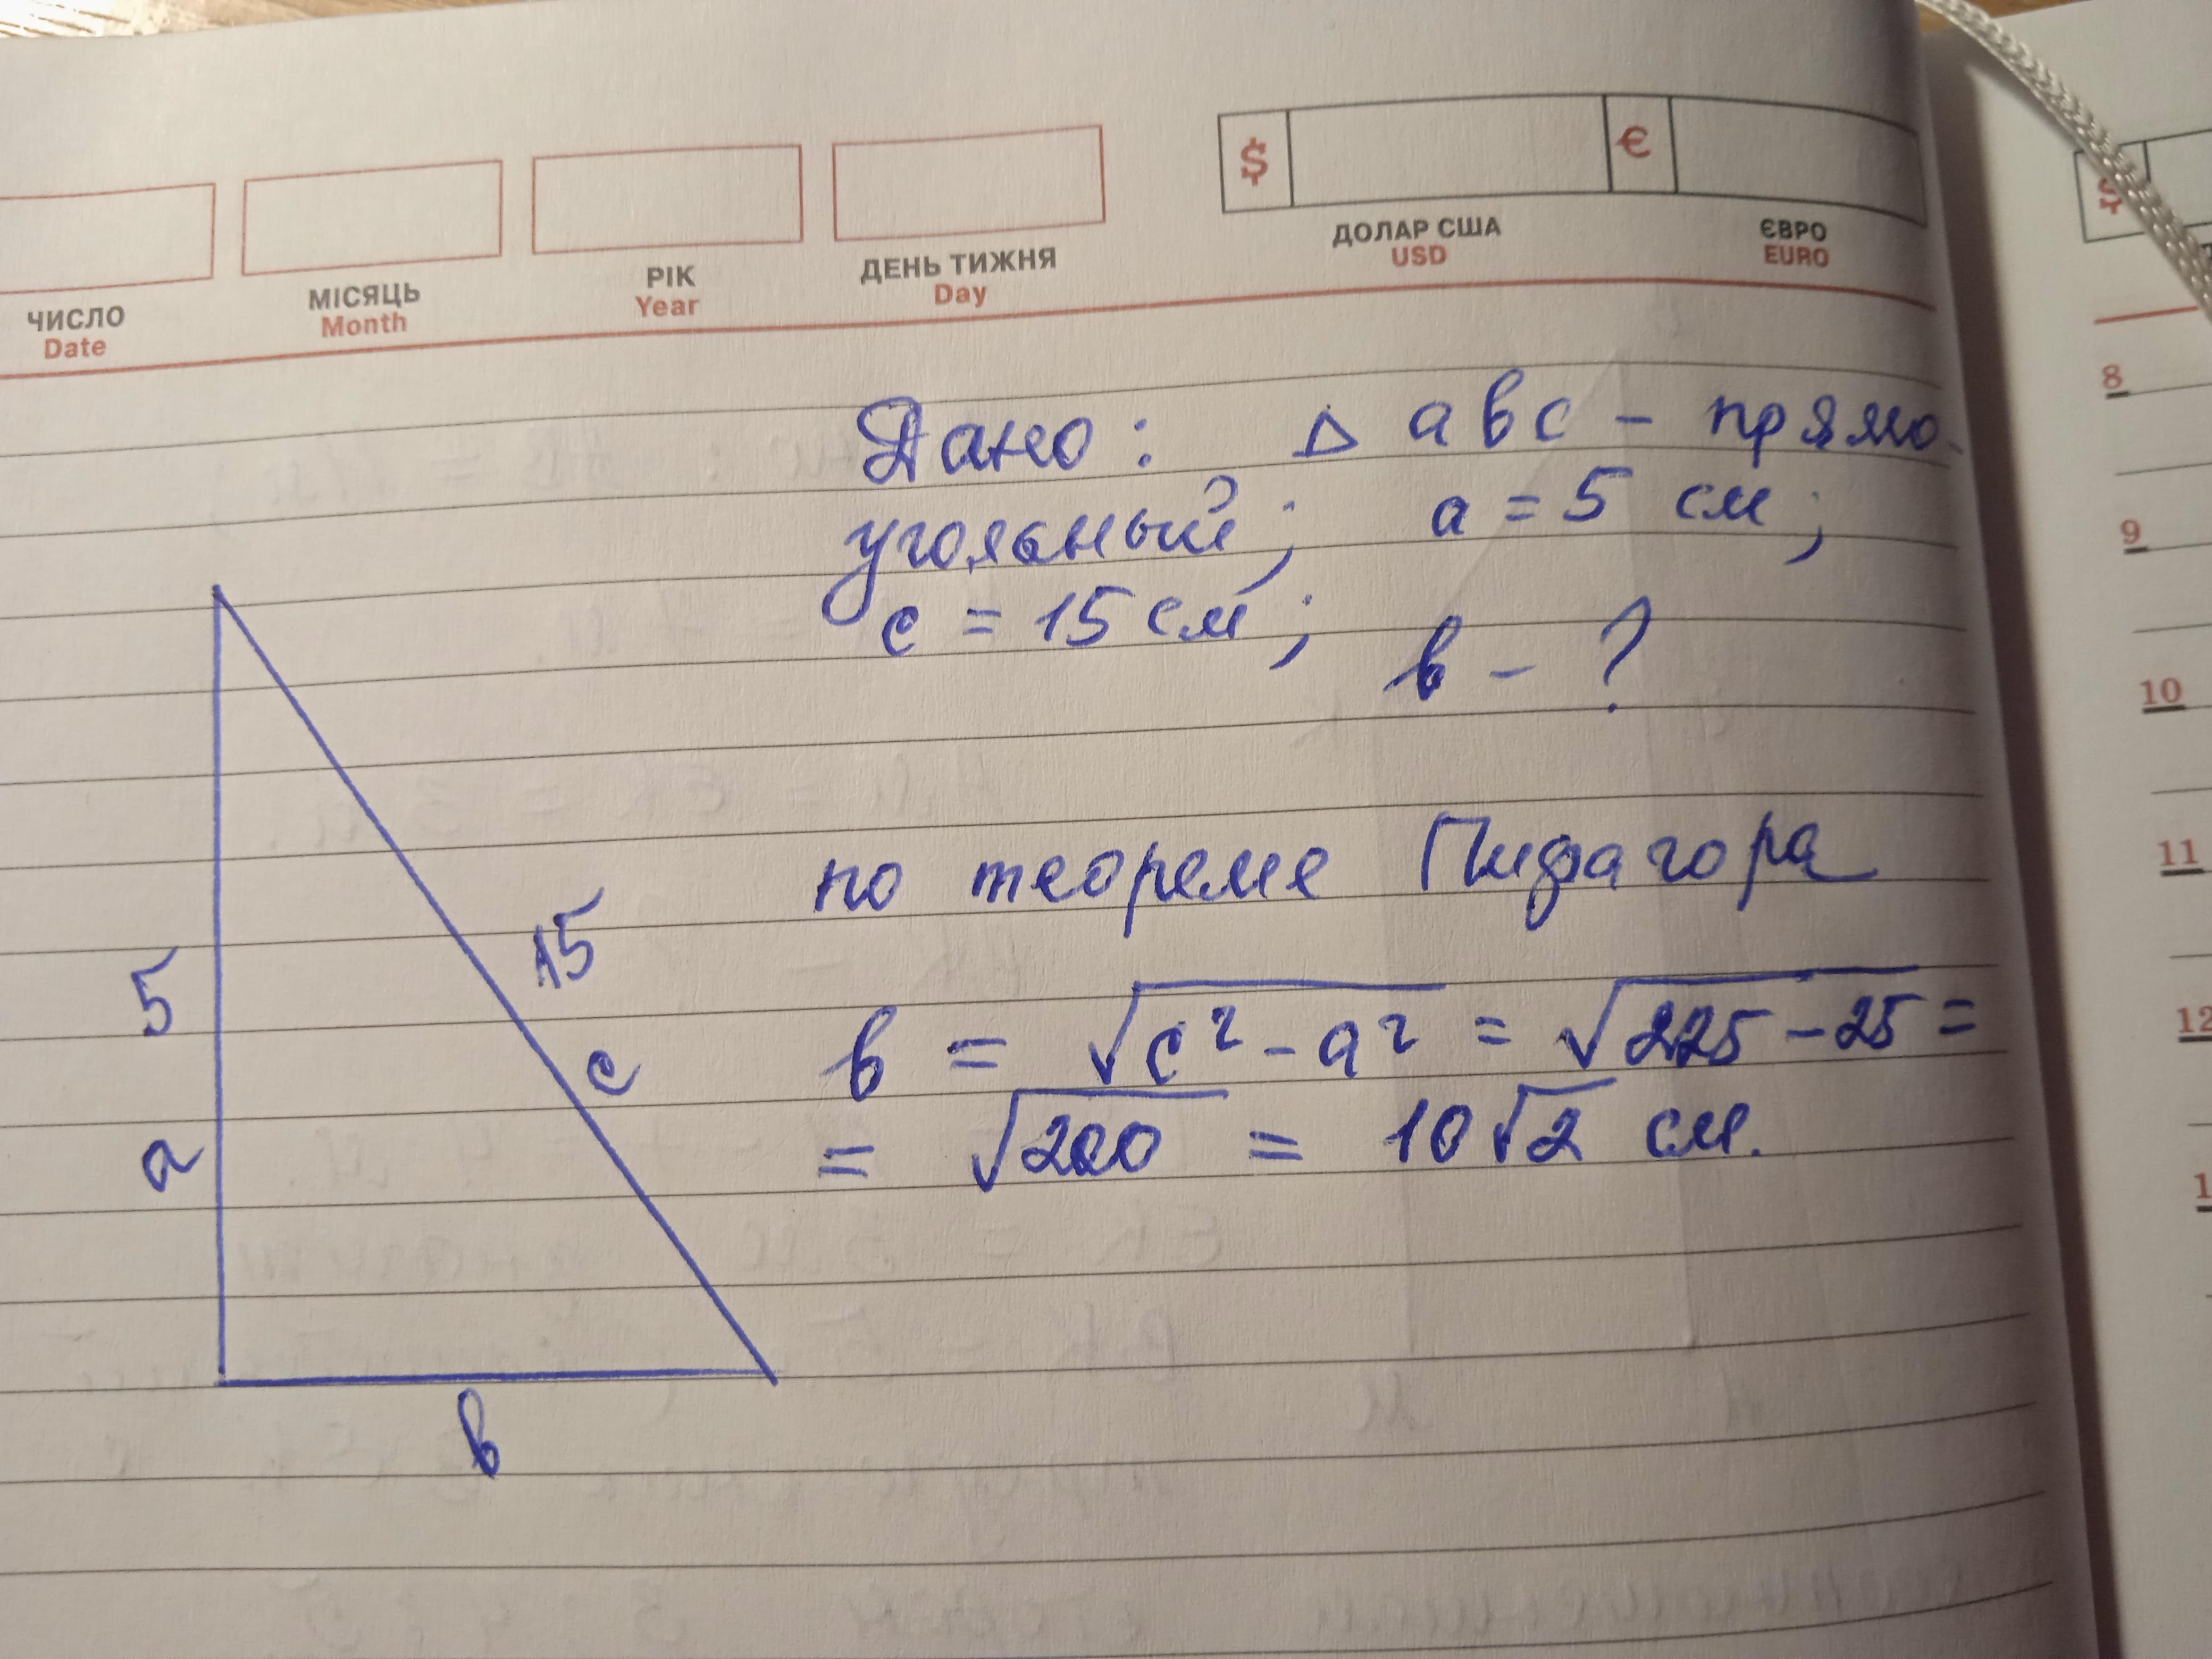 $ €
ЧИСЛО МІСЯЦЬ РІК ДЕНЬ ТИЖНЯ ДОЛАР США ЄВРО
Date Month Year Day USD EURO
Дано: Δ abc - прямо-
угольный; a = 5 см;
c = 15 см; b - ?
по теореме Пифагора
b = √c² - a² = √225 - 25 =
= √200 = 10√2 см.
5
15
c
a
b
$
8
9
10
11
12
1